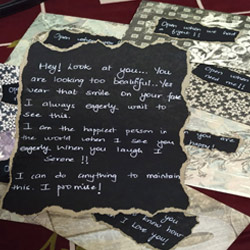 Open when we had
a fight !!
Open when
Open when
miss me !!
Hey! Look at you... You
are looking too beautiful...Yes
wear that smile on your face
I always eagerly wait to
see this.
I am the happiest person in
the world when I see you
eagerly. When you laugh I
Serene !!
I can do anything to maintain
this. I promise!
you are
happy
you
know how
I love you!